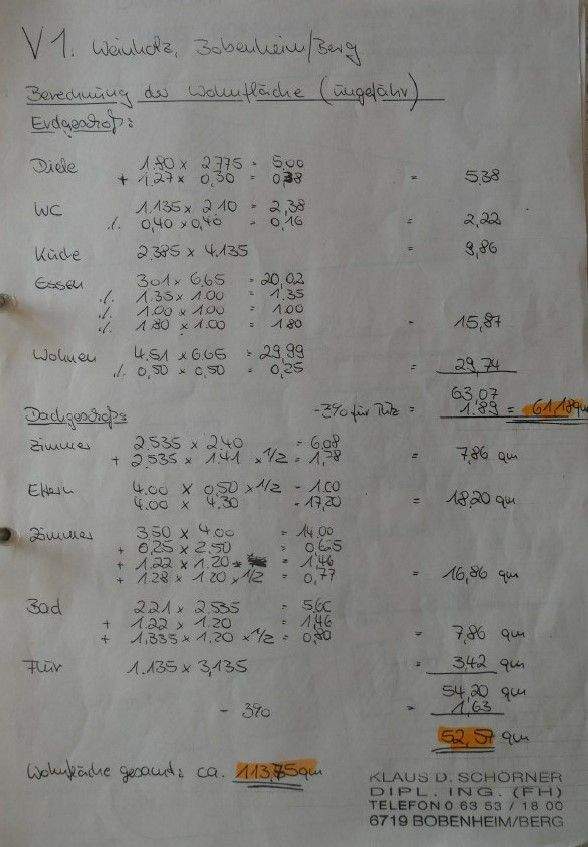 V1. Weinholz, Bobenheim/Berg
Berechnung der Wohnfläche (ungefähr)
Erdgeschoß:
Diele 1.80 x 2.775 = 5,00
+ 1,27 x 0,30 = 0,38 = 5,38
WC 1.135 x 2.10 = 2,38
./. 0,40 x 0,40 = 0,16 = 2,22
Küche 2.385 x 4.135 = 9,86
Essen 3.01 x 6.65 = 20,02
./. 1.35 x 1.00 = 1.35
./. 1.00 x 1.00 = 1.00
./. 1.80 x 1.00 = 1.80 = 15,87
Wohnen 4.51 x 6.65 = 29,99
./. 0,50 x 0,50 = 0,25 = 29,74
63,07
Dachgeschoß: -3% für Putz = 1.89 = 61,18 qm
Zimmer 2.535 x 2.40 = 6,08
+ 2.535 x 1.41 x 1/2 = 1,78 = 7,86 qm
Eltern 4.00 x 0,50 x 1/2 = 1.00
4.00 x 4.30 = 17,20 = 18,20 qm
Zimmer 3.50 x 4.00 = 14,00
+ 0,25 x 2.50 = 0,65
+ 1.22 x 1.20 = 1,46
+ 1.28 x 1.20 x 1/2 = 0,77 = 16,86 qm
Bad 2.21 x 2.535 = 5,60
+ 1.22 x 1.20 = 1,46
+ 1.335 x 1.20 x 1/2 = 0,80 = 7,86 qm
Flur 1.135 x 3,135 = 3,42 qm
54,20 qm
- 3% = 1,63
52,57 qm
Wohnfläche gesamt: ca. 113,75 qm
KLAUS D. SCHÖRNER
DIPL. ING. (FH)
TELEFON 0 63 53 / 18 00
6719 BOBENHEIM/BERG